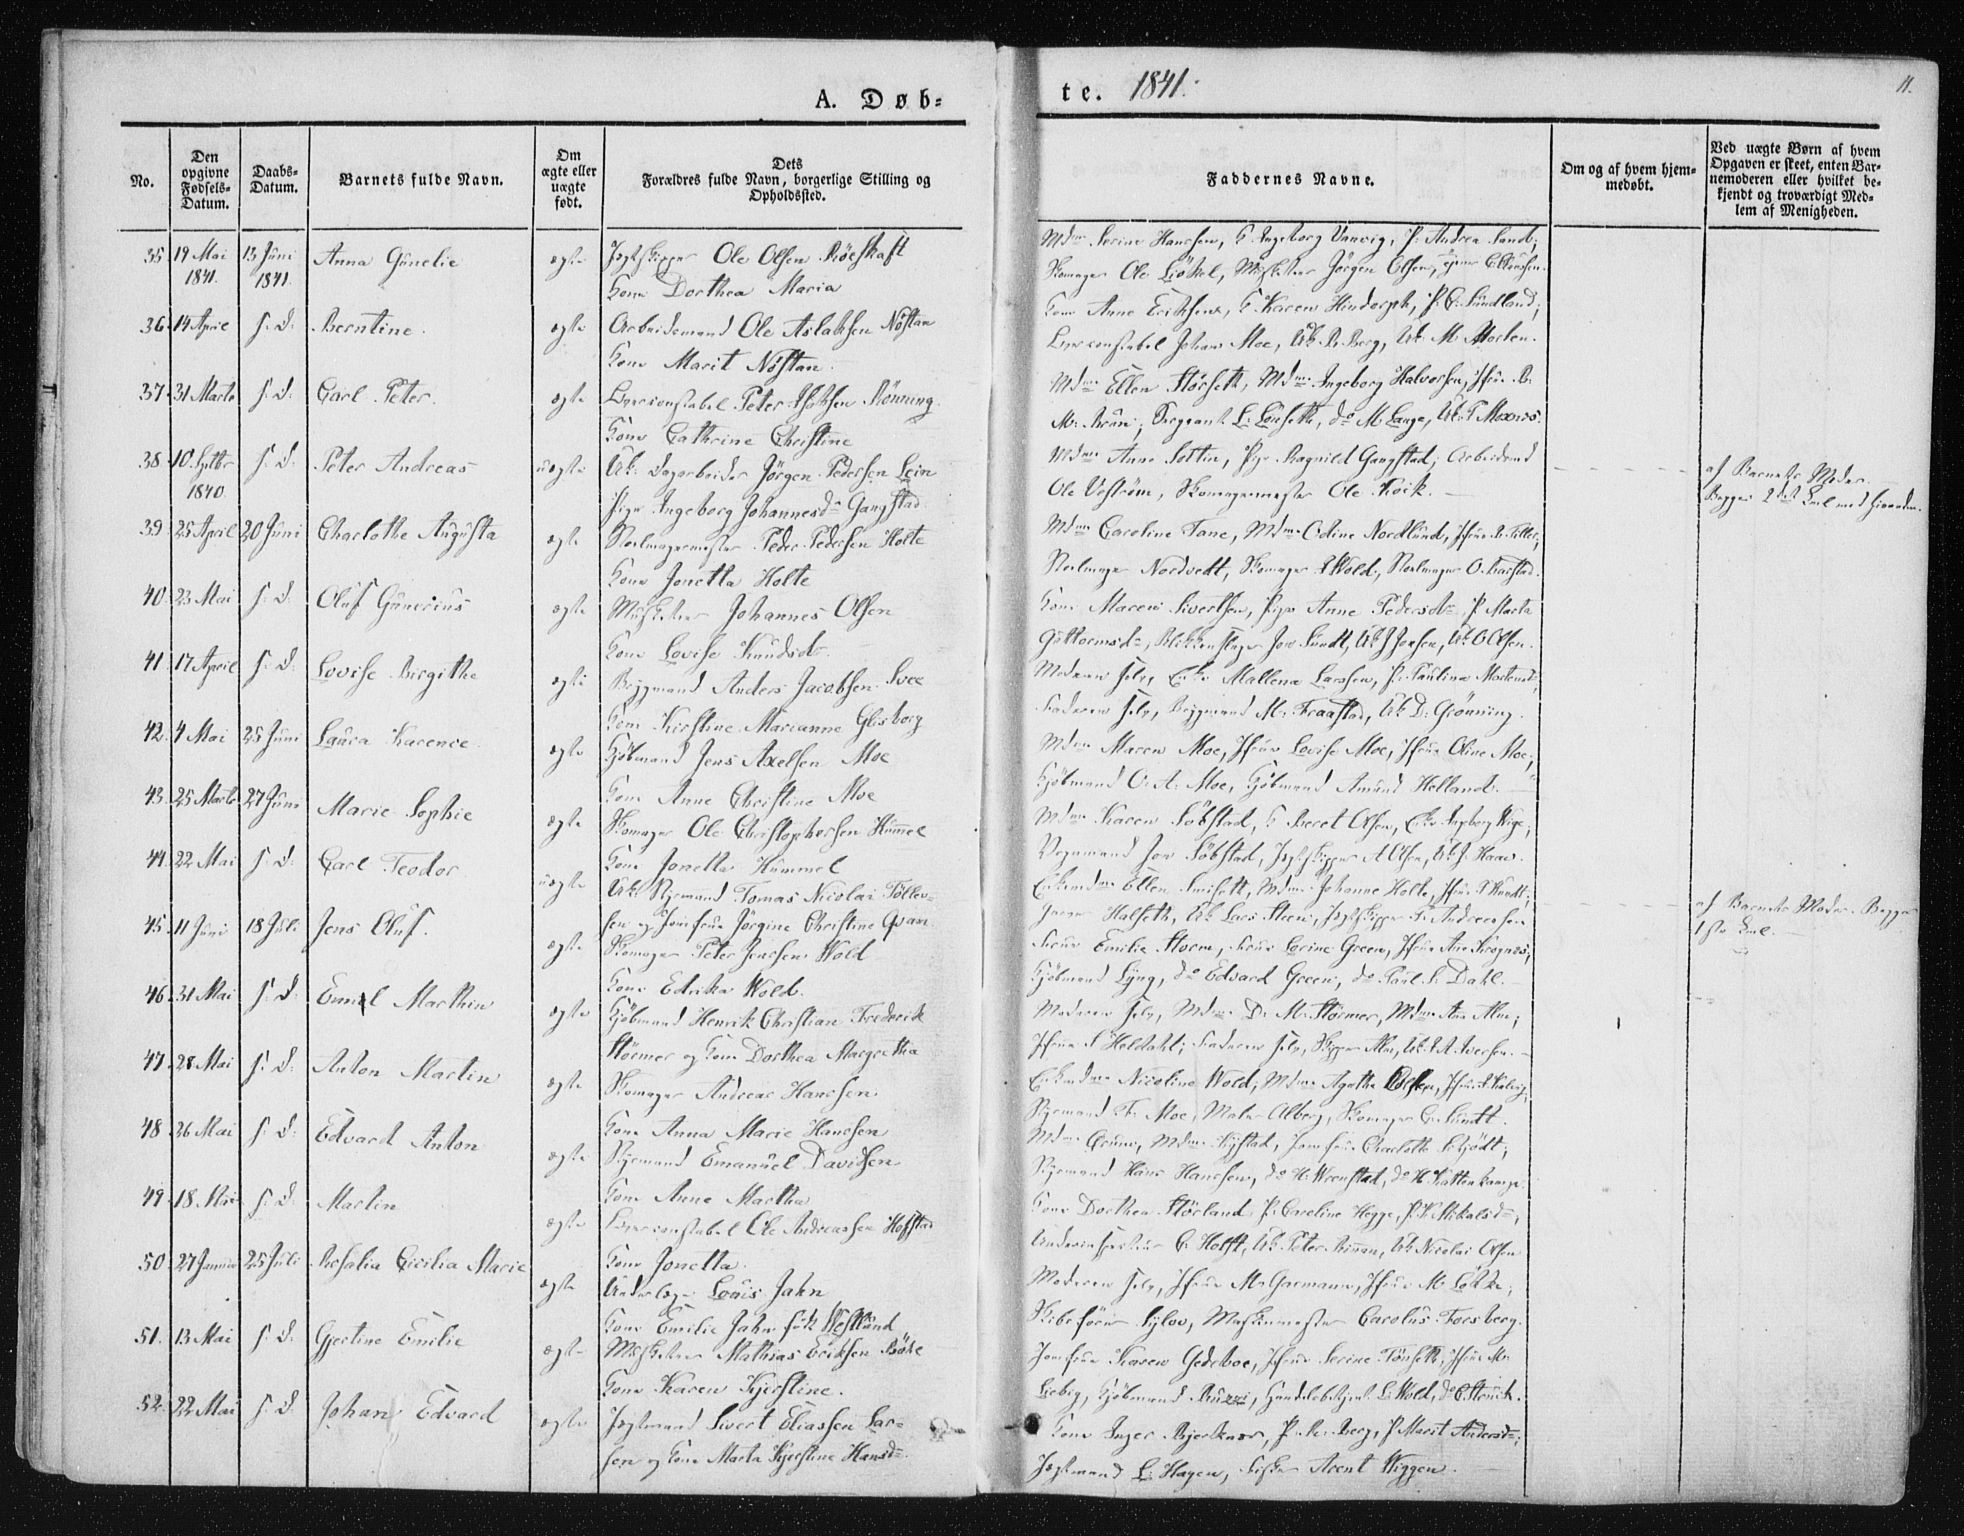 A. Døb-
te. 1841.
11.
No.
Den opgivne Fødsels-Datum.
Daabs-Datum.
Barnets fulde Navn.
Om ægte eller uægte født.
Dets Forældres fulde Navn, borgerlige Stilling og Opholdssted.
Faddernes Navne.
Om og af hvem hjemmedøbt.
Ved uægte Børn af hvem Opgaven er skeet, enten Barnemoderen eller hvilket bekjendt og troværdigt Medlem af Menigheden.
35 19 Mai 1841. 13 Juni 1841. Anna Gunelie ægte Jægtskipper Ole Olsen Röeskaft
Kone Dorthea Maria
Mdme Serine Hanssen, K Ingeborg Vanvig, P. Andrea Sand,
Skomager Ole Liökel, Musketeer Jörgen Olsen,
36. 14 April s. D. Berntine. ægte Arbeidsmand Ole Aslaksen Nöstan
Kone Marit Nöstan.
Kone Anne Eriksen, K Karen Hindorph, P. E. Sundland;
Overconstabel Johan Moe, Uk. B. Berg, Uk. M Morten.
37. 31 Marts s. D. Carl Peter. ægte Overconstabel Peter Isaksen Rönning
Kone Cathrine Christine
Mdme Ellen Störseth, Mdme Ingeborg Halvorsen, Jfrue B.
M. Bruun, Sergeant L: Lönseth, do M Lange, Uk: T Moxnes.
38 10. Septbr 1840. s. D. Peter Andreas uægte Uk: Dagarbeider Jörgen Pedersen Lein
Pige Ingeborg Johannesdr Gangstad.
Mdme Anne Sottin, Pige Ragnild Gangstad, Arbeidsmd
Ole Veström, Skomagermester Ole Kroik.
af Barnets Moder.
Begges 2det Leiermaal
39 25 April 20 Juni Charlothe Augusta ægte Stolmagermester Peder Pedersen Holte
Kone Jonetta Holte
Mdme Caroline Tane, Mdme Odine Nordlund, Jfrue B. Piller,
Stolmager Nordvedt, Skomager Wold, Stolmager O. Barstad.
40. 23 Mai s. D. Oluf Gunerius ægte Musketeer Johannes Olsen
Kone Lovise Knudsdr.
Kone Maren Sivertsen, Pige Anne Pedersdr P Marta
Guttormsdr, Blikkenslager Jon Sundt, Uk J Jensen, Uk. O Olsen.
41 17 April s. D. Lovise Birgithe ægte Bygmand Anders Jacobsen Svee
Kone Kirstine Marianne Glisborg
Moderen selv, Enke Mallena Larssen, P. Paulina Mortensd;
Faderen selv, Bygmand M. Fraastad, Uk D. Grönning.
42. 4 Mai 25 Juni Laura Karence. ægte Kjöbmand Jens Axelsen Moe
Kone Anne Christine Moe
Mdme Maren Moe, Jfrue Lovise Moe, Jfrue Oline Moe;
Kjöbmand O. A. Moe, Kjöbmand Amund Helland.
43. 25 Marts 27 Juni Marie Sophie ægte Skomager Ole Christophersen Hummel
Kone Jonetta Hummel
Mdme Karen Söbstad, K Beret Olsen, Enke Ingeborg Wige;
Vognmand Jon Söbstad, Jægtskipper A Olsen, Uk J. Haave.
44. 22 Mai s. D. Carl Teodor uægte Uk: Styrmand Tomas Nicolai Tollev-
sen og Jomfrue Jörgine Christine Qvam
Enkemdme Ellen Smiseth, Mdme Johanne Holte, Jfrue S Kundt;
Halseth, Uk Lars Steen, Jægtskipper P. Andreassen
af Barnets Moder. Begges
1ste Leie.
45. 11 Juni 18 Juli Jens Oluf. ægte Skomager Peter Jenssen Wold
Kone Edrika Wold.
Frue Emilie Storm, Frue Lorine Green, Jfrue Ane Krognes;
Kjöbmand Lyng, do Edvard Green, do Paul S. Dahl.
46 31 Mai s. D. Emil Marthin ægte Kjöbmand Henrik Christian Frederik
Störmer og Kone Dorthea Margretha
Moderen selv, Mdme D. M. Störmer, Mdme Ane Alm;
Jfrue S Holdahl; Faderen selv, Skipper Alm, Uk. A. Iversen.
47. 28 Mai s. D. Anton Martin ægte Skomager Andreas Hanssen
Kone Anna Marie Hanssen
Enkemdme Nicoline Wold, Mdme Agathe Olsen,
Styrmand F. Moe, Maler Alberg, Skomager C. Lundt.
48 26 Mai s. D. Edvard Anton ægte Styrmand Emanuel Davidsen
Kone Anne Martha
Mdme Bruun, Mdme Rystad, Jomfrue Charlotte Schjödt;
Styrmand Hans Hanssen, do H: Wrenstad, do H. Kattenkamp.
49. 18. Mai s. D. Martin ægte Overconstabel Ole Andreassen Hofstad
Kone Jonetta.
Kone Dorthea Störland P. Caroline Hegge, P. K. Mikalsdr,
G. Holft, Uk Peter Rinnan, Uk Nicolai Olsen
50. 27 Januar 25 Juli Rosalia Cicilia Marie ægte Underlæge Louis Jahn
Kone Emilie Jahn föd Westlund
Moderen selv, Jfrue M. Garmann, Jfrue M Lökke;
Skibsförer Sylow, Maskinmester Carolus Forsberg.
51. 13 Mai s. D. Gjertine Emilie ægte Musketeer Mathias Eriksen Röke
Kone Karen Kjerstine.
Jomfrue Karen Gedeboe, Jfrue Serine Tönseth, Jfrue M.
Liebig, Kjöbmand Bruun, Handelsbetjent L. Wold, do C. Stenvik.
52. 22 Mai s. D. Johan Edvard ægte Jægtmand Sivert Eliassen Lar-
sen og Kone Marta Kjerstine Hansdr
Kone Inger Bjerknes, P. K. Berg, P Marit Andersdr;
Jægtmand L: Hagen, Fisker Arent Wiggen.